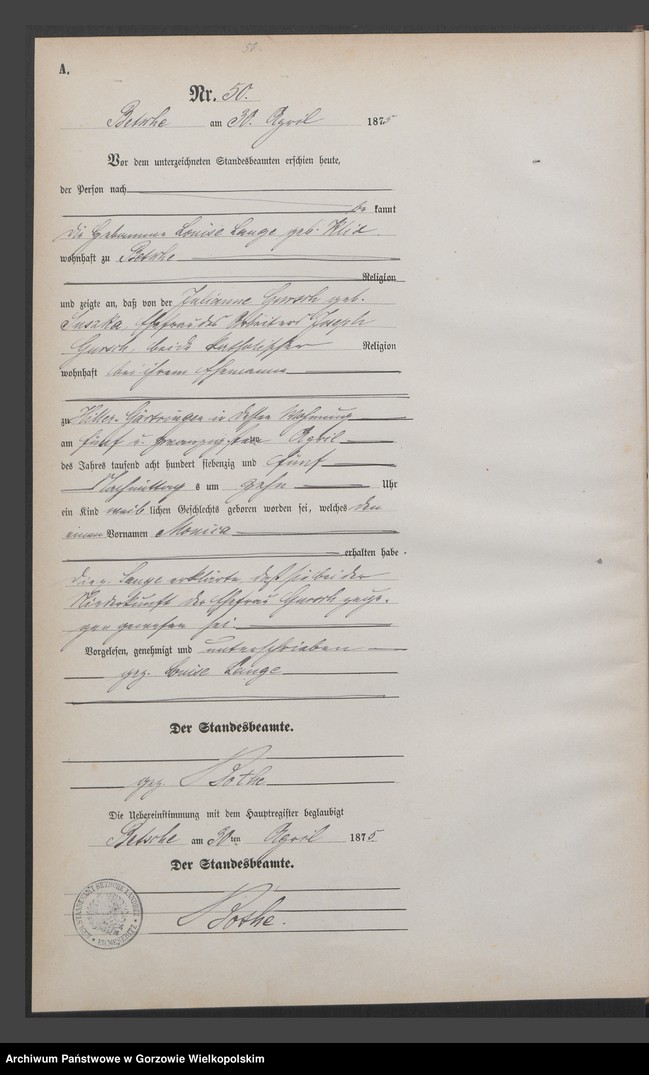 50.
A.
Nr. 50.
Betsche am 30. April 1875
Vor dem unterzeichneten Standesbeamten erschien heute,
der Person nach
be kannt
die Hebamme Louise Lange geb. Klix
wohnhaft zu Betsche
Religion
und zeigte an, daß von der Julianne Gursch geb.
Ehefrau des Arbeiters Joseph
Gursch, beide katholischer Religion
wohnhaft bei ihrem Ehemanne
zu in dessen Wohnung
am fünf u. zwanzigsten April
des Jahres tausend acht hundert siebenzig und fünf
Nachmittag s um zehn Uhr
ein Kind weib lichen Geschlechts geboren worden sei, welches den
einen Vornamen Monica
erhalten habe.
Die p. Lange erklärte, daß sie bei der
Niederkunft der Ehefrau Gursch zuge-
gen gewesen sei.
Vorgelesen, genehmigt und unterschrieben
gez. Louise Lange
Der Standesbeamte.
gez. Bothe
Die Uebereinstimmung mit dem Hauptregister beglaubigt
Betsche am 30ten April 1875.
Der Standesbeamte.
Bothe.
Archiwum Państwowe w Gorzowie Wielkopolskim